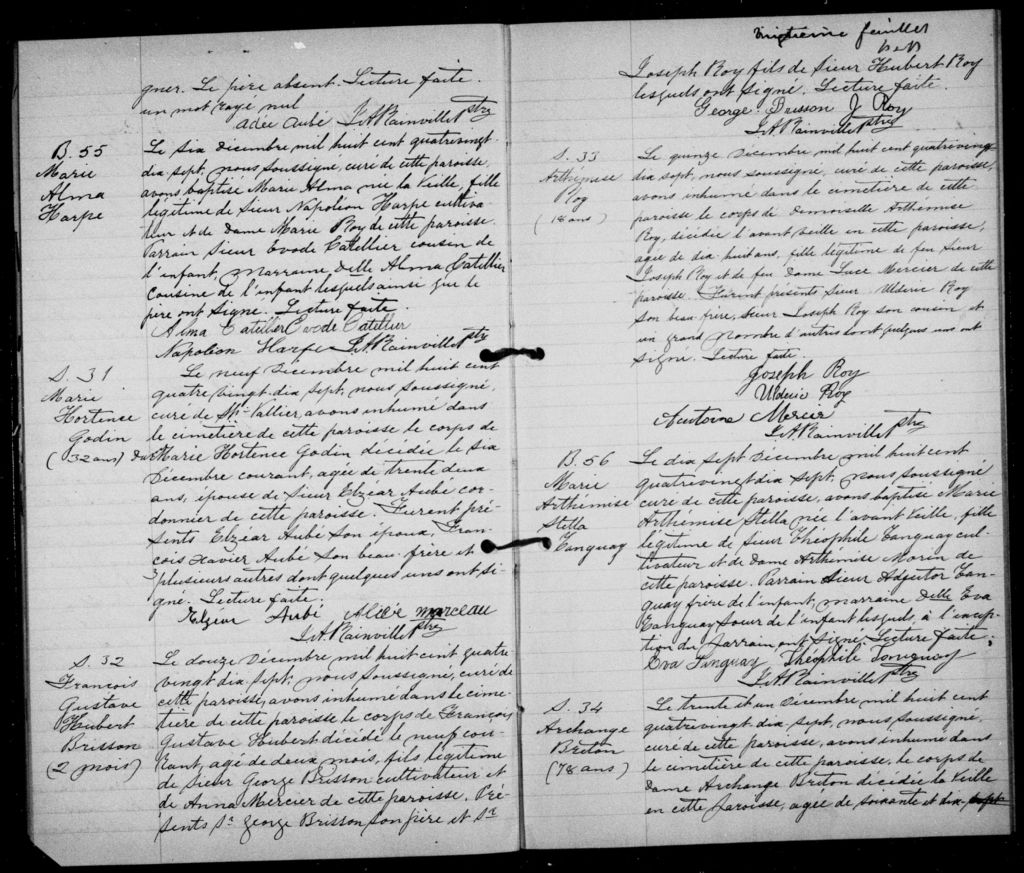 gner. Le père absent. Lecture faite.
un mot rayé nul
Adée Aubé J.A. Rainville Ptre
B. 55
Marie
Alma
Harpe
Le six Décembre mil huit cent quatrevingt
dix sept, nous soussigné, curé de cette paroisse,
avons baptisé Marie Alma née la veille, fille
légitime de Sieur Napoléon Harpe cultiva-
teur et de Dame Marie Roy de cette paroisse.
Parrain Sieur Evode Catellier cousin de
l'enfant, marraine Delle Alma Catellier
cousine de l'enfant lesquels ainsi que le
père ont signé. Lecture faite
Alma Catellier Evode Catellier
Napoléon Harpe J.A. Rainville Ptre
S. 31
Marie
Hortence
Godin
(32 ans)
Le neuf Décembre mil huit cent
quatre vingt dix sept, nous soussigné,
curé de St. Vallier avons inhumé dans
le cimetière de cette paroisse le corps de
Marie Hortence Godin décédée le six
Décembre courant, agée de trente deux
ans, épouse de Sieur Elzéar Aubé cor-
donnier de cette paroisse. Furent pré-
sents Elzéar Aubé son époux, Fran-
çois Xavier Aubé son beau-frère et
plusieurs autres dont quelques uns ont si-
gné. Lecture faite.
Elzear Aubé Alice Marceau
J.A. Rainville Ptre
S. 32
François
Gustave
Hubert
Brisson
(2 mois)
Le douze Décembre mil huit cent quatre
vingt dix sept, nous soussigné, curé de
cette paroisse, avons inhumé dans le cime-
tière de cette paroisse le corps de François
Gustave Hubert décédé le neuf cou-
rant, agé de deux mois, fils légitime
de Sieur George Brisson cultivateur et
de Anna Mercier de cette paroisse. Pré-
sents Sr. George Brisson son père et Sr
vingtième feuillet
Joseph Roy fils de Sieur Hubert Roy
lesquels ont signé. Lecture faite.
George Brisson J Roy
J.A. Rainville Ptre
S. 33
Arthémise
Roy
(18 ans)
Le quinze Décembre mil huit cent quatrevingt
dix sept, nous soussigné, curé de cette paroisse,
avons inhumé dans le cimetière de cette
paroisse le corps de Demoiselle Arthémise
Roy, décédée l'avant veille en cette paroisse,
agée de dix huit ans, fille légitime de feu Sieur
Joseph Roy et de feu Dame Luce Mercier de cette
paroisse. Furent présents Sieur Ulderic Roy
son beau frère, Sieur Joseph Roy son cousin et
un grand nombre d'autres dont quelques uns ont
signé. Lecture faite.
Joseph Roy
Ulderic Roy
Antoine Mercier
J.A. Rainville Ptre
B. 56
Marie
Arthémise
Stella
Tanguay
Le dix sept Décembre mil huit cent
quatrevingt dix sept, nous soussigné
curé de cette paroisse, avons baptisé Marie
Arthémise Stella née l'avant veille, fille
légitime de Sieur Théophile Tanguay cul-
tivateur et de Dame Arthémise Morin de
cette paroisse. Parrain Sieur Adjutor Tan-
guay frère de l'enfant, marraine Delle Eva
Tanguay soeur de l'enfant lesquels, à l'excep-
tion du parrain ont signé. Lecture faite.
Eva Tanguay Théophile Tanguay
J.A. Rainville Ptre
S. 34
Archange
Breton
(78 ans)
Le trente et un Décembre mil huit cent
quatrevingt dix, sept, nous soussigné,
curé de cette paroisse, avons inhumé dans
le cimetière de cette paroisse, le corps de
Dame Archange Breton décédée la veille
en cette paroisse, agée de soixante et dix, sept